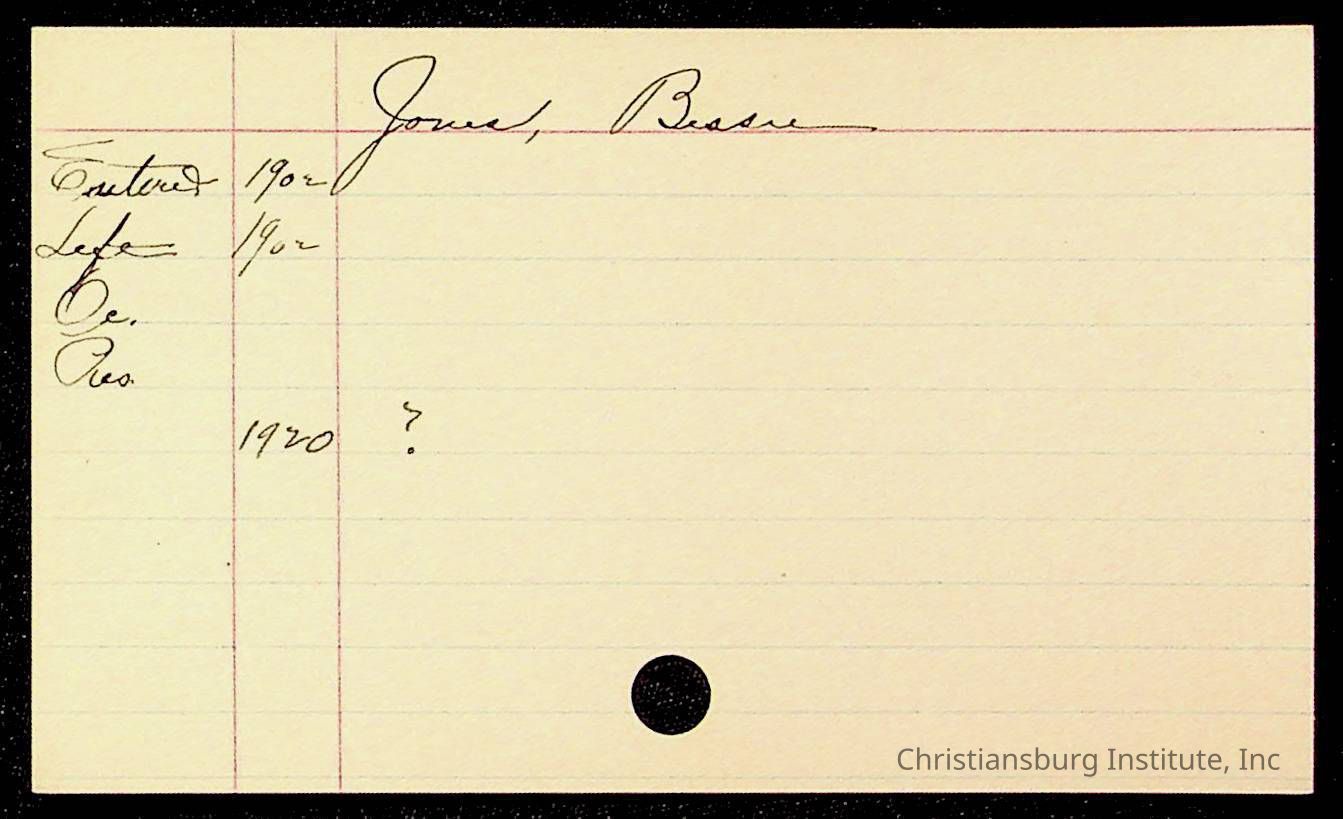 Jones, Bessie
Entered 1902
Left 1902
Oc.
Res.
1920 ?
Christiansburg Institute, Inc